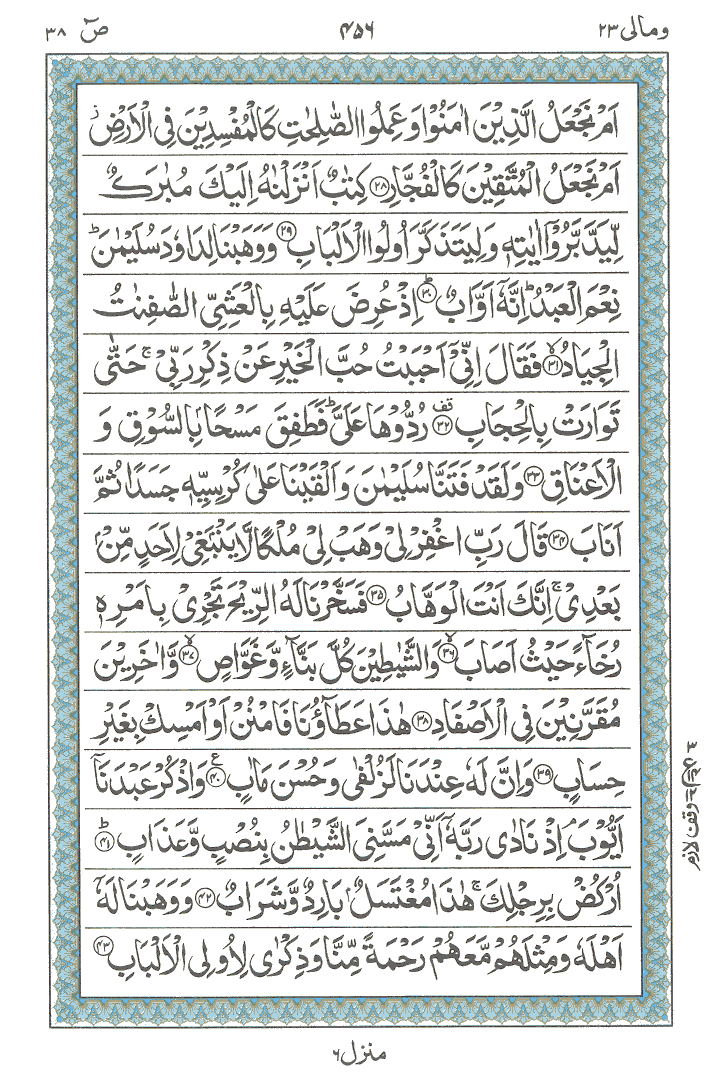 ومالی ۲۳ ۴۵۶ صٓ ۳۸
اَمْ نَجْعَلُ الَّذِيْنَ اٰمَنُوْا وَعَمِلُوا الصّٰلِحٰتِ كَالْمُفْسِدِيْنَ فِي الْاَرْضِ ز
اَمْ نَجْعَلُ الْمُتَّقِيْنَ كَالْفُجَّارِ ۲۸ كِتٰبٌ اَنْزَلْنٰهُ اِلَيْكَ مُبٰرَكٌ
لِّيَدَّبَّرُوْٓا اٰيٰتِهٖ وَلِيَتَذَكَّرَ اُولُوا الْاَلْبَابِ ۲۹ وَوَهَبْنَا لِدَاوٗدَ سُلَيْمٰنَ ؕ
نِعْمَ الْعَبْدُ ؕ اِنَّهٗٓ اَوَّابٌ ؕ ۳۰ اِذْ عُرِضَ عَلَيْهِ بِالْعَشِيِّ الصّٰفِنٰتُ
الْجِيَادُ ۙ ۳۱ فَقَالَ اِنِّيْٓ اَحْبَبْتُ حُبَّ الْخَيْرِ عَنْ ذِكْرِ رَبِّيْ ۚ حَتّٰى
تَوَارَتْ بِالْحِجَابِ قف ۳۲ رُدُّوْهَا عَلَيَّ ؕ فَطَفِقَ مَسْحًۢا بِالسُّوْقِ وَ
الْاَعْنَاقِ ۳۳ وَلَقَدْ فَتَنَّا سُلَيْمٰنَ وَاَلْقَيْنَا عَلٰى كُرْسِيِّهٖ جَسَدًا ثُمَّ
اَنَابَ ۳۴ قَالَ رَبِّ اغْفِرْ لِيْ وَهَبْ لِيْ مُلْكًا لَّا يَنْۢبَغِيْ لِاَحَدٍ مِّنْۢ
بَعْدِيْ ۚ اِنَّكَ اَنْتَ الْوَهَّابُ ۳۵ فَسَخَّرْنَا لَهُ الرِّيْحَ تَجْرِيْ بِاَمْرِهٖ
رُخَآءً حَيْثُ اَصَابَ ۙ ۳۶ وَالشَّيٰطِيْنَ كُلَّ بَنَّآءٍ وَّغَوَّاصٍ ۙ ۳۷ وَّاٰخَرِيْنَ
مُقَرَّنِيْنَ فِي الْاَصْفَادِ ۳۸ هٰذَا عَطَآؤُنَا فَامْنُنْ اَوْ اَمْسِكْ بِغَيْرِ
حِسَابٍ ۳۹ وَاِنَّ لَهٗ عِنْدَنَا لَزُلْفٰى وَحُسْنَ مَاٰبٍ ع ۴۰ وَاذْكُرْ عَبْدَنَآ
اَيُّوْبَ ۘ اِذْ نَادٰى رَبَّهٗٓ اَنِّيْ مَسَّنِيَ الشَّيْطٰنُ بِنُصْبٍ وَّعَذَابٍ ؕ ۴۱
اُرْكُضْ بِرِجْلِكَ ۚ هٰذَا مُغْتَسَلٌۢ بَارِدٌ وَّشَرَابٌ ۴۲ وَوَهَبْنَا لَهٗٓ
اَهْلَهٗ وَمِثْلَهُمْ مَّعَهُمْ رَحْمَةً مِّنَّا وَذِكْرٰى لِاُولِي الْاَلْبَابِ ۴۳
وقف لازم
منزل ۶